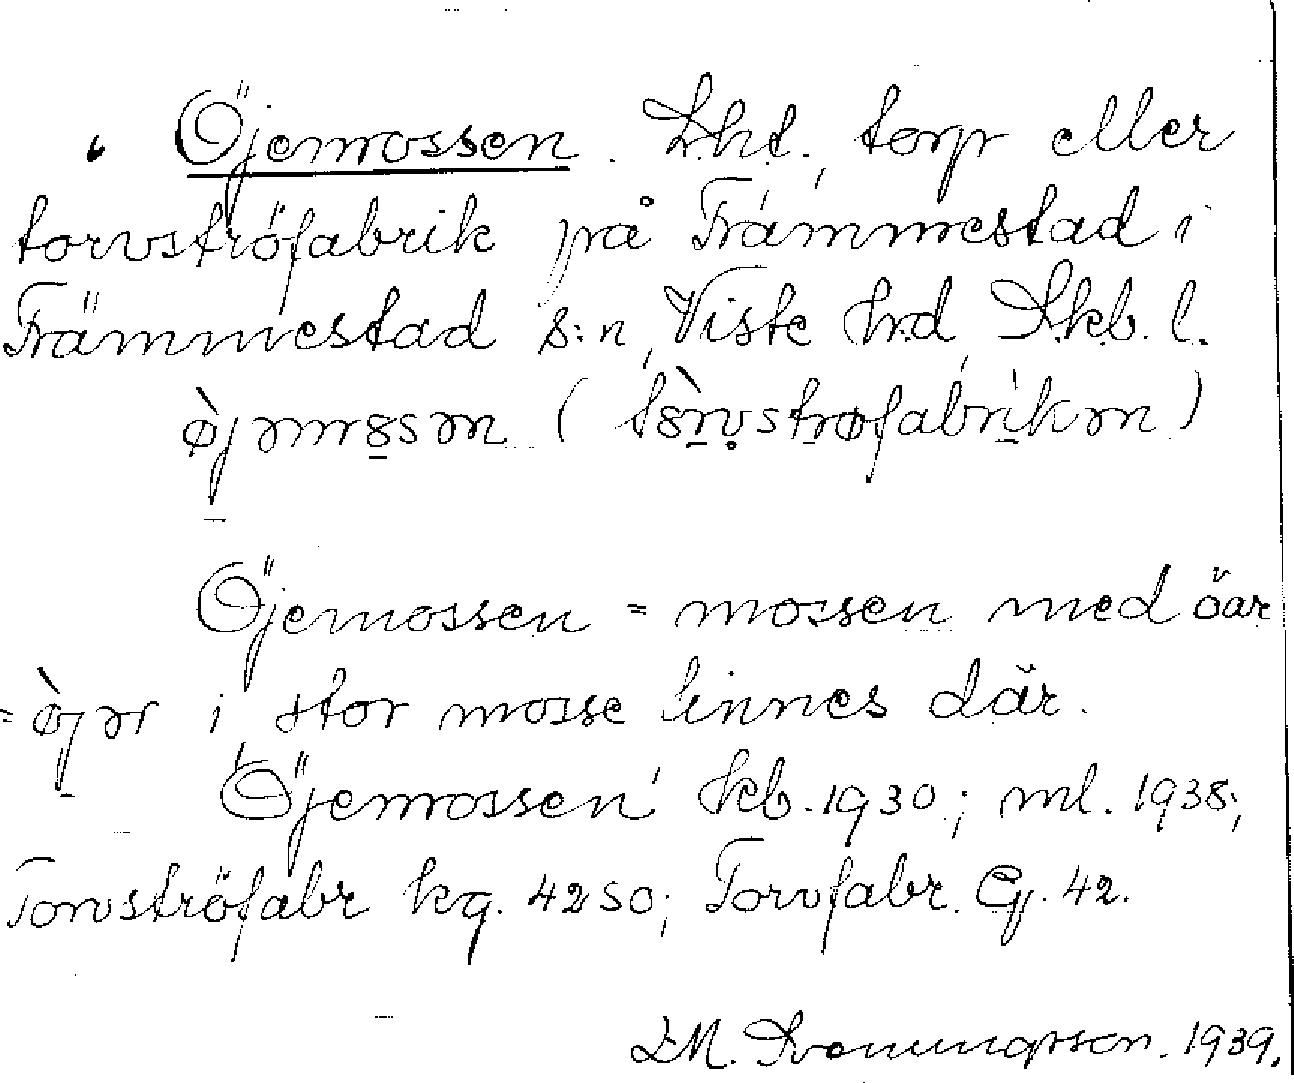 Öjemossen. Lht., torp eller
torvströfabrik på Främmestad i
Främmestad s:n, Viste hrd, Skb. l.
Öjemossen = mossen med öar
i stor mosse finnes där.
Öjemossen kb. 1930; ml. 1938;
Torvströfabr kg. 4250; Torvfabr. Gj. 42.
1939.